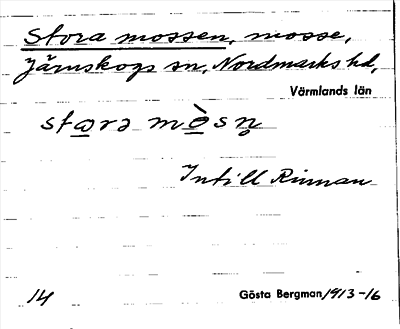 Stora mossen, mosse,
Järnskogs sn, Nordmarks hd,
Värmlands län
stɷrə mòsn̥
Intill Rinnan
14 Gösta Bergman 1913-16